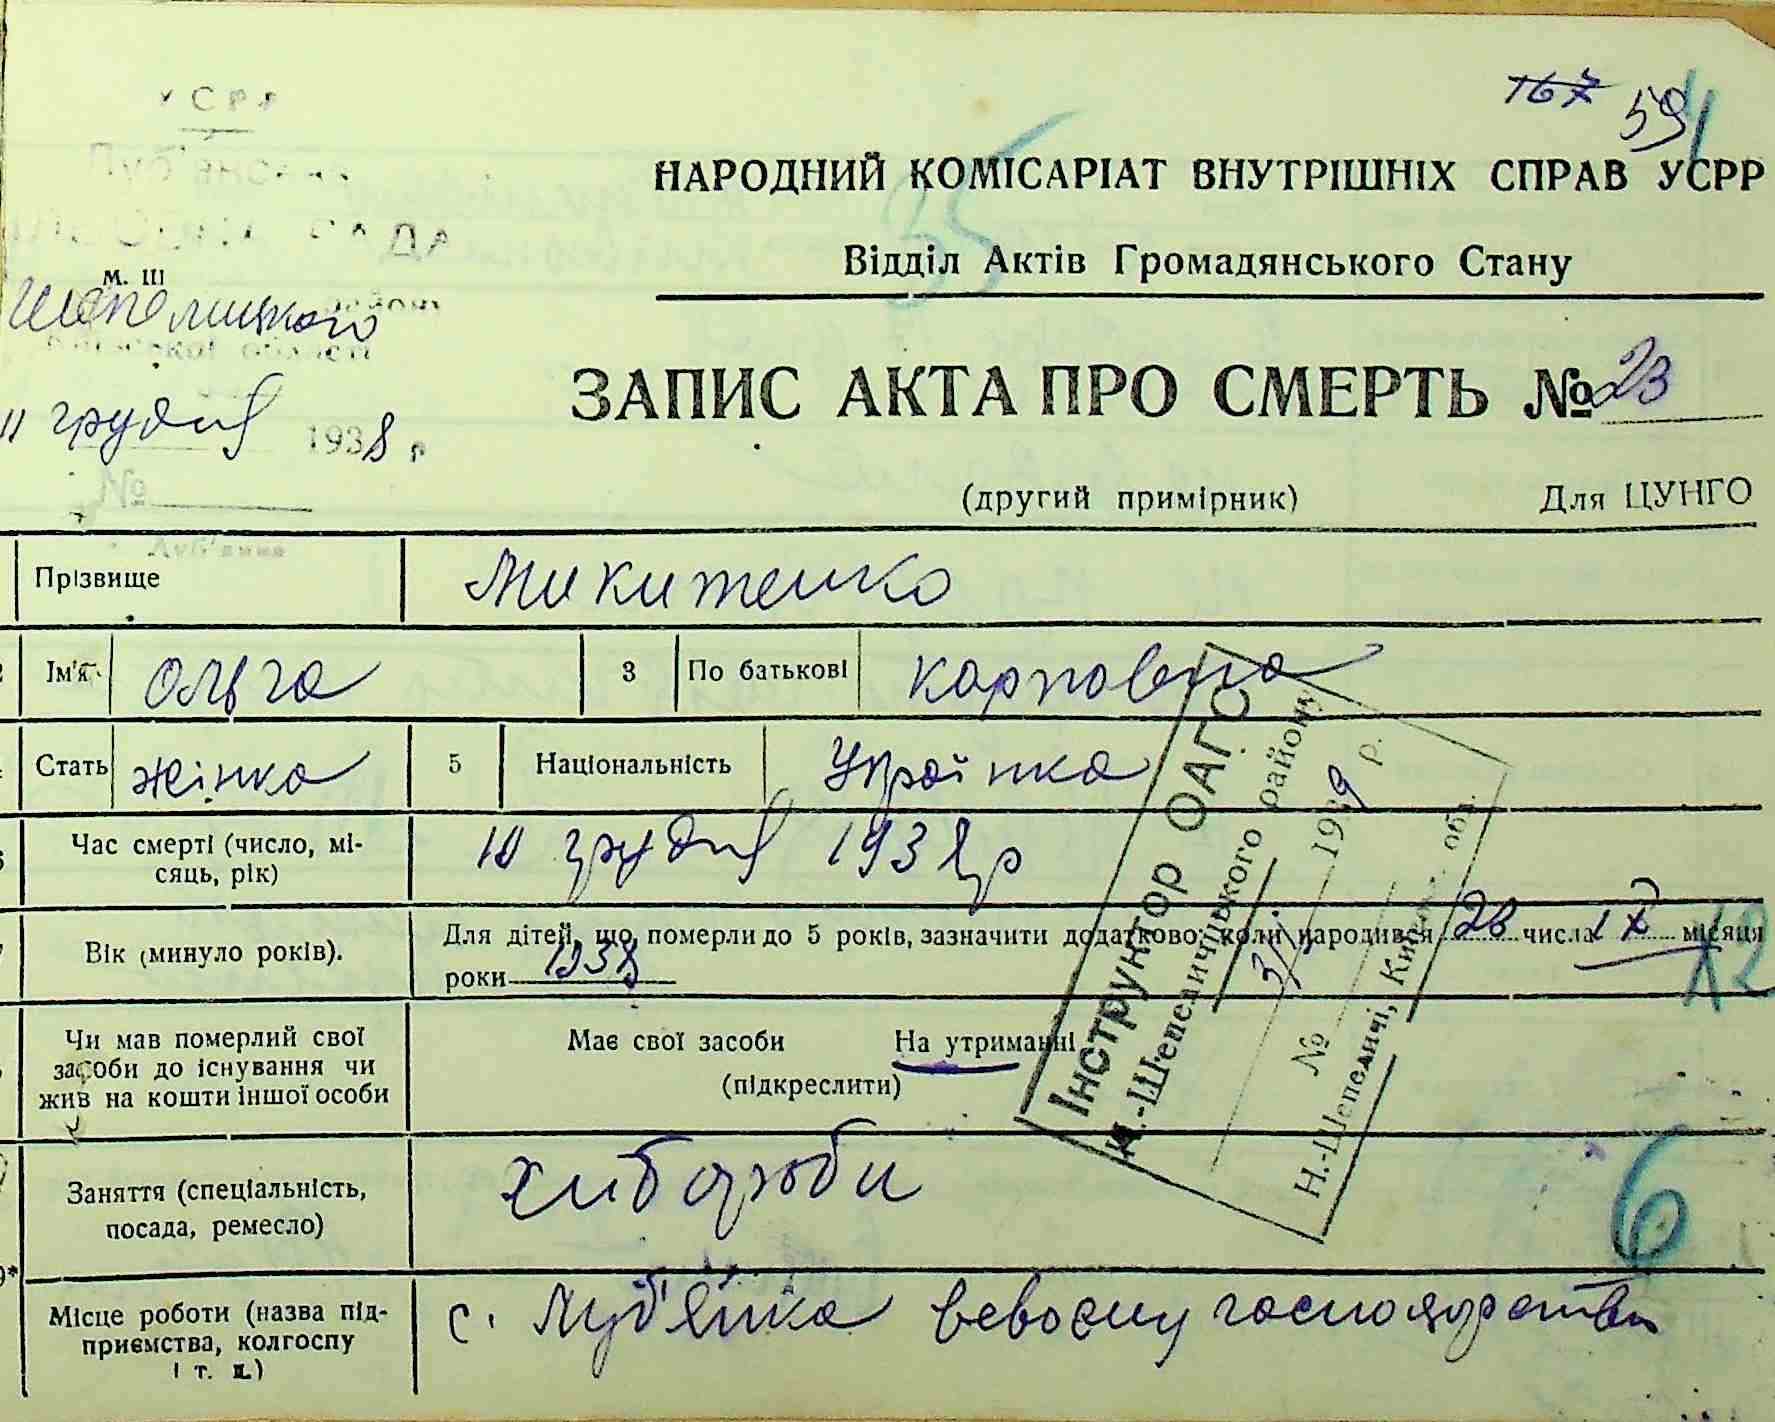 УСРР
РАДА
М. Ш
Шепелицького
області
11 грудня 1938 р
№
167 591
НАРОДНИЙ КОМІСАРІАТ ВНУТРІШНІХ СПРАВ УСРР
35
Відділ Актів Громадянського Стану
ЗАПИС АКТА ПРО СМЕРТЬ № 23
(другий примірник) Для ЦУНГО
Прізвище Микитенко
Ім'я Ольга 3 По батькові Карповна
Стать жінка 5 Національність Українка
Час смерті (число, мі-
сяць, рік)
10 грудня 1938 р
Вік (минуло років).
Для дітей, що померли до 5 років, зазначити додатково: коли народився 28 числа ІХ місяця
роки 1938
12
Чи мав померлий свої
засоби до існування чи
жив на кошти іншої особи
Має свої засоби На утриманні
(підкреслити)
Заняття (спеціальність,
посада, ремесло)
6
Місце роботи (назва під-
приємства, колгоспу
і т. д.)
с. Луб'янка господарстви
Інструктор ОАГС
Н.-Шепелицького району
1939 р.
№
Н.-Шепеличі, Київ. обл.